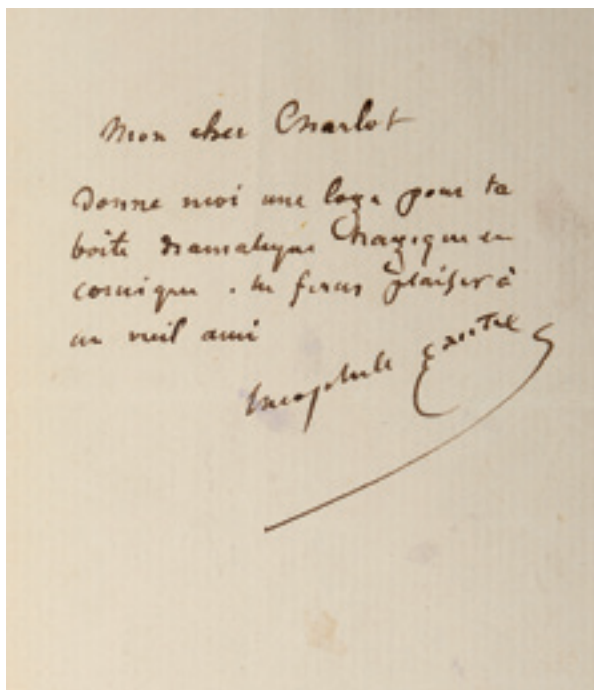 Mon cher Charlot
Donne moi une loge pour ta
boite dramatique tragique et
comique . tu feras plaisir à
un vieil ami
Theophile Gautier